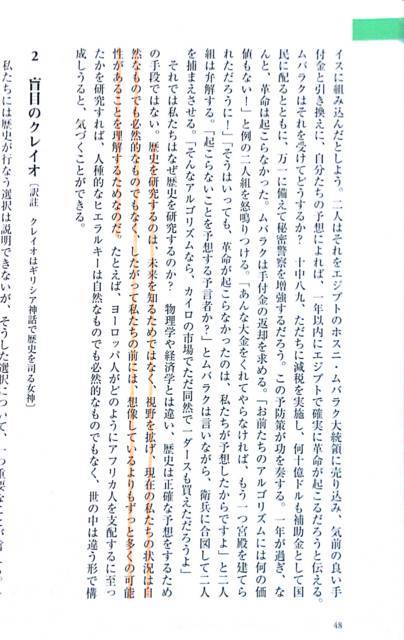 イスに組み込んだとしよう。二人はそれをエジプトのホスニ・ムバラク大統領に売り込み、気前の良い手
付金と引き換えに、自分たちの予想によれば、一年以内にエジプトで確実に革命が起こるだろうと伝える。
ムバラクはそれを受けてどうするか? 十中八九、ただちに減税を実施し、何十億ドルも補助金として国
民に配るとともに、万一に備えて秘密警察を増強するだろう。この予防策が功を奏する。一年が過ぎ、な
んと、革命は起こらなかった。ムバラクは手付金の返却を求める。「お前たちのアルゴリズムには何の価
値もない!」と例の二人組を怒鳴りつける。「あんな大金をくれてやらなければ、もう一つ宮殿を建てら
れただろうに!」「そうはいっても、革命が起こらなかったのは、私たちが予想したからですよ」と二人
組は弁解する。「起こらないことを予想する予言者か?」とムバラクは言いながら、衛兵に合図して二人
を捕まえさせる。「そんなアルゴリズムなら、カイロの市場でただ同然で一ダースも買えただろうよ」
それでは私たちはなぜ歴史を研究するのか? 物理学や経済学とは違い、歴史は正確な予想をするため
の手段ではない。歴史を研究するのは、未来を知るためではなく、視野を拡げ、現在の私たちの状況は自
然なものでも必然的なものでもなく、したがって私たちの前には、想像しているよりもずっと多くの可能
性があることを理解するためなのだ。たとえば、ヨーロッパ人がどのようにアフリカ人を支配するに至っ
たかを研究すれば、人種的なヒエラルキーは自然なものでも必然的なものでもなく、世の中は違う形で構
成しうると、気づくことができる。
2 盲目のクレイオ〔訳註 クレイオはギリシア神話で歴史を司る女神〕
私たちには歴史が行なう選択は説明できないが、そうした選択について、一つ重要なことが言える。
48